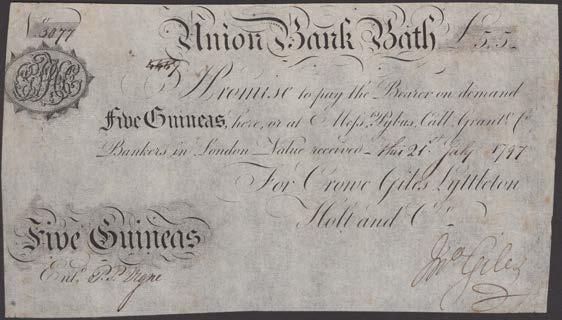 N 3077
Union Bank Bath £5,5
I Promise to pay the Bearer on demand
Five Guineas, here, or at Messrs Pybus, Call, Grant & Co
Bankers in London Value received this 21st July 1797
For Crowe Giles Lyttleton
Holt and Co
Five Guineas
Entd. P.P. Vigne
Jno Giles